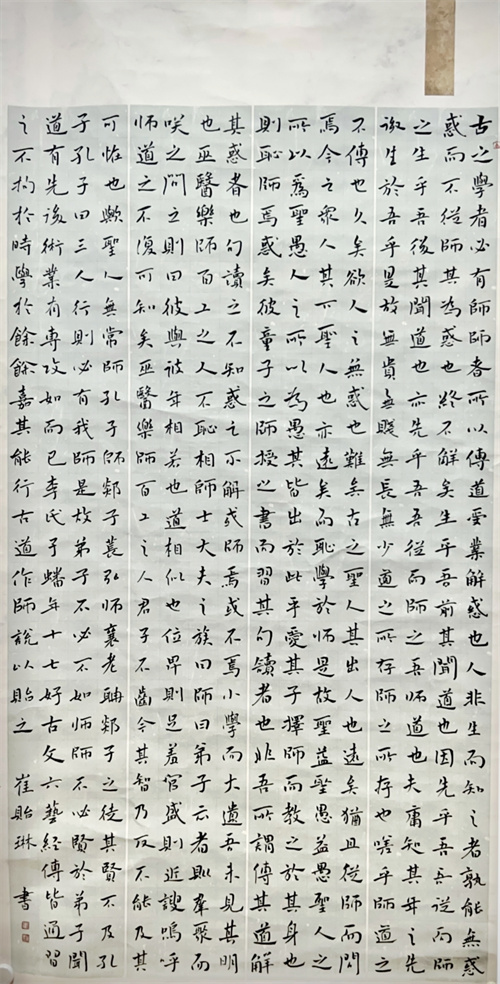 古之學者必有師師者所以傳道受業解惑也人非生而知之者孰能無惑
惑而不從師其為惑也終不解矣生乎吾前其聞道也固先乎吾吾從而師
之生乎吾後其聞道也亦先乎吾吾從而師之吾師道也夫庸知其年之先
後生於吾乎是故無貴無賤無長無少道之所存師之所存也嗟乎師道之
不傳也久矣欲人之無惑也難矣古之聖人其出人也遠矣猶且從師而問
焉今之眾人其下聖人也亦遠矣而恥學於師是故聖益聖愚益愚聖人之
所以為聖愚人之所以為愚其皆出於此乎愛其子擇師而教之於其身也
則恥師焉惑矣彼童子之師授之書而習其句讀者也非吾所謂傳其道解
其惑者也句讀之不知惑之不解或師焉或不焉小學而大遺吾未見其明
也巫醫樂師百工之人不恥相師士大夫之族曰師曰弟子云者則群聚而
咲之問之則曰彼與彼年相若也道相似也位卑則足羞官盛則近諛嗚呼
師道之不復可知矣巫醫樂師百工之人君子不齒今其智乃反不能及其
可怪也歟聖人無常師孔子師郯子萇弘師襄老聃郯子之徒其賢不及孔
子孔子曰三人行則必有我師是故弟子不必不如師師不必賢於弟子聞
道有先後術業有專攻如而已李氏子蟠年十七好古文六藝經傳皆通習
之不拘於時學於餘餘嘉其能行古道作師說以貽之 崔貽琳 書